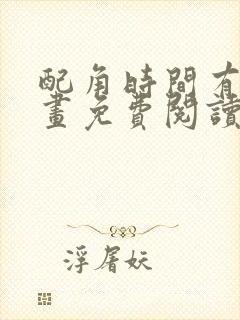 配角時間有
畫免費閱讀
浮屠妖